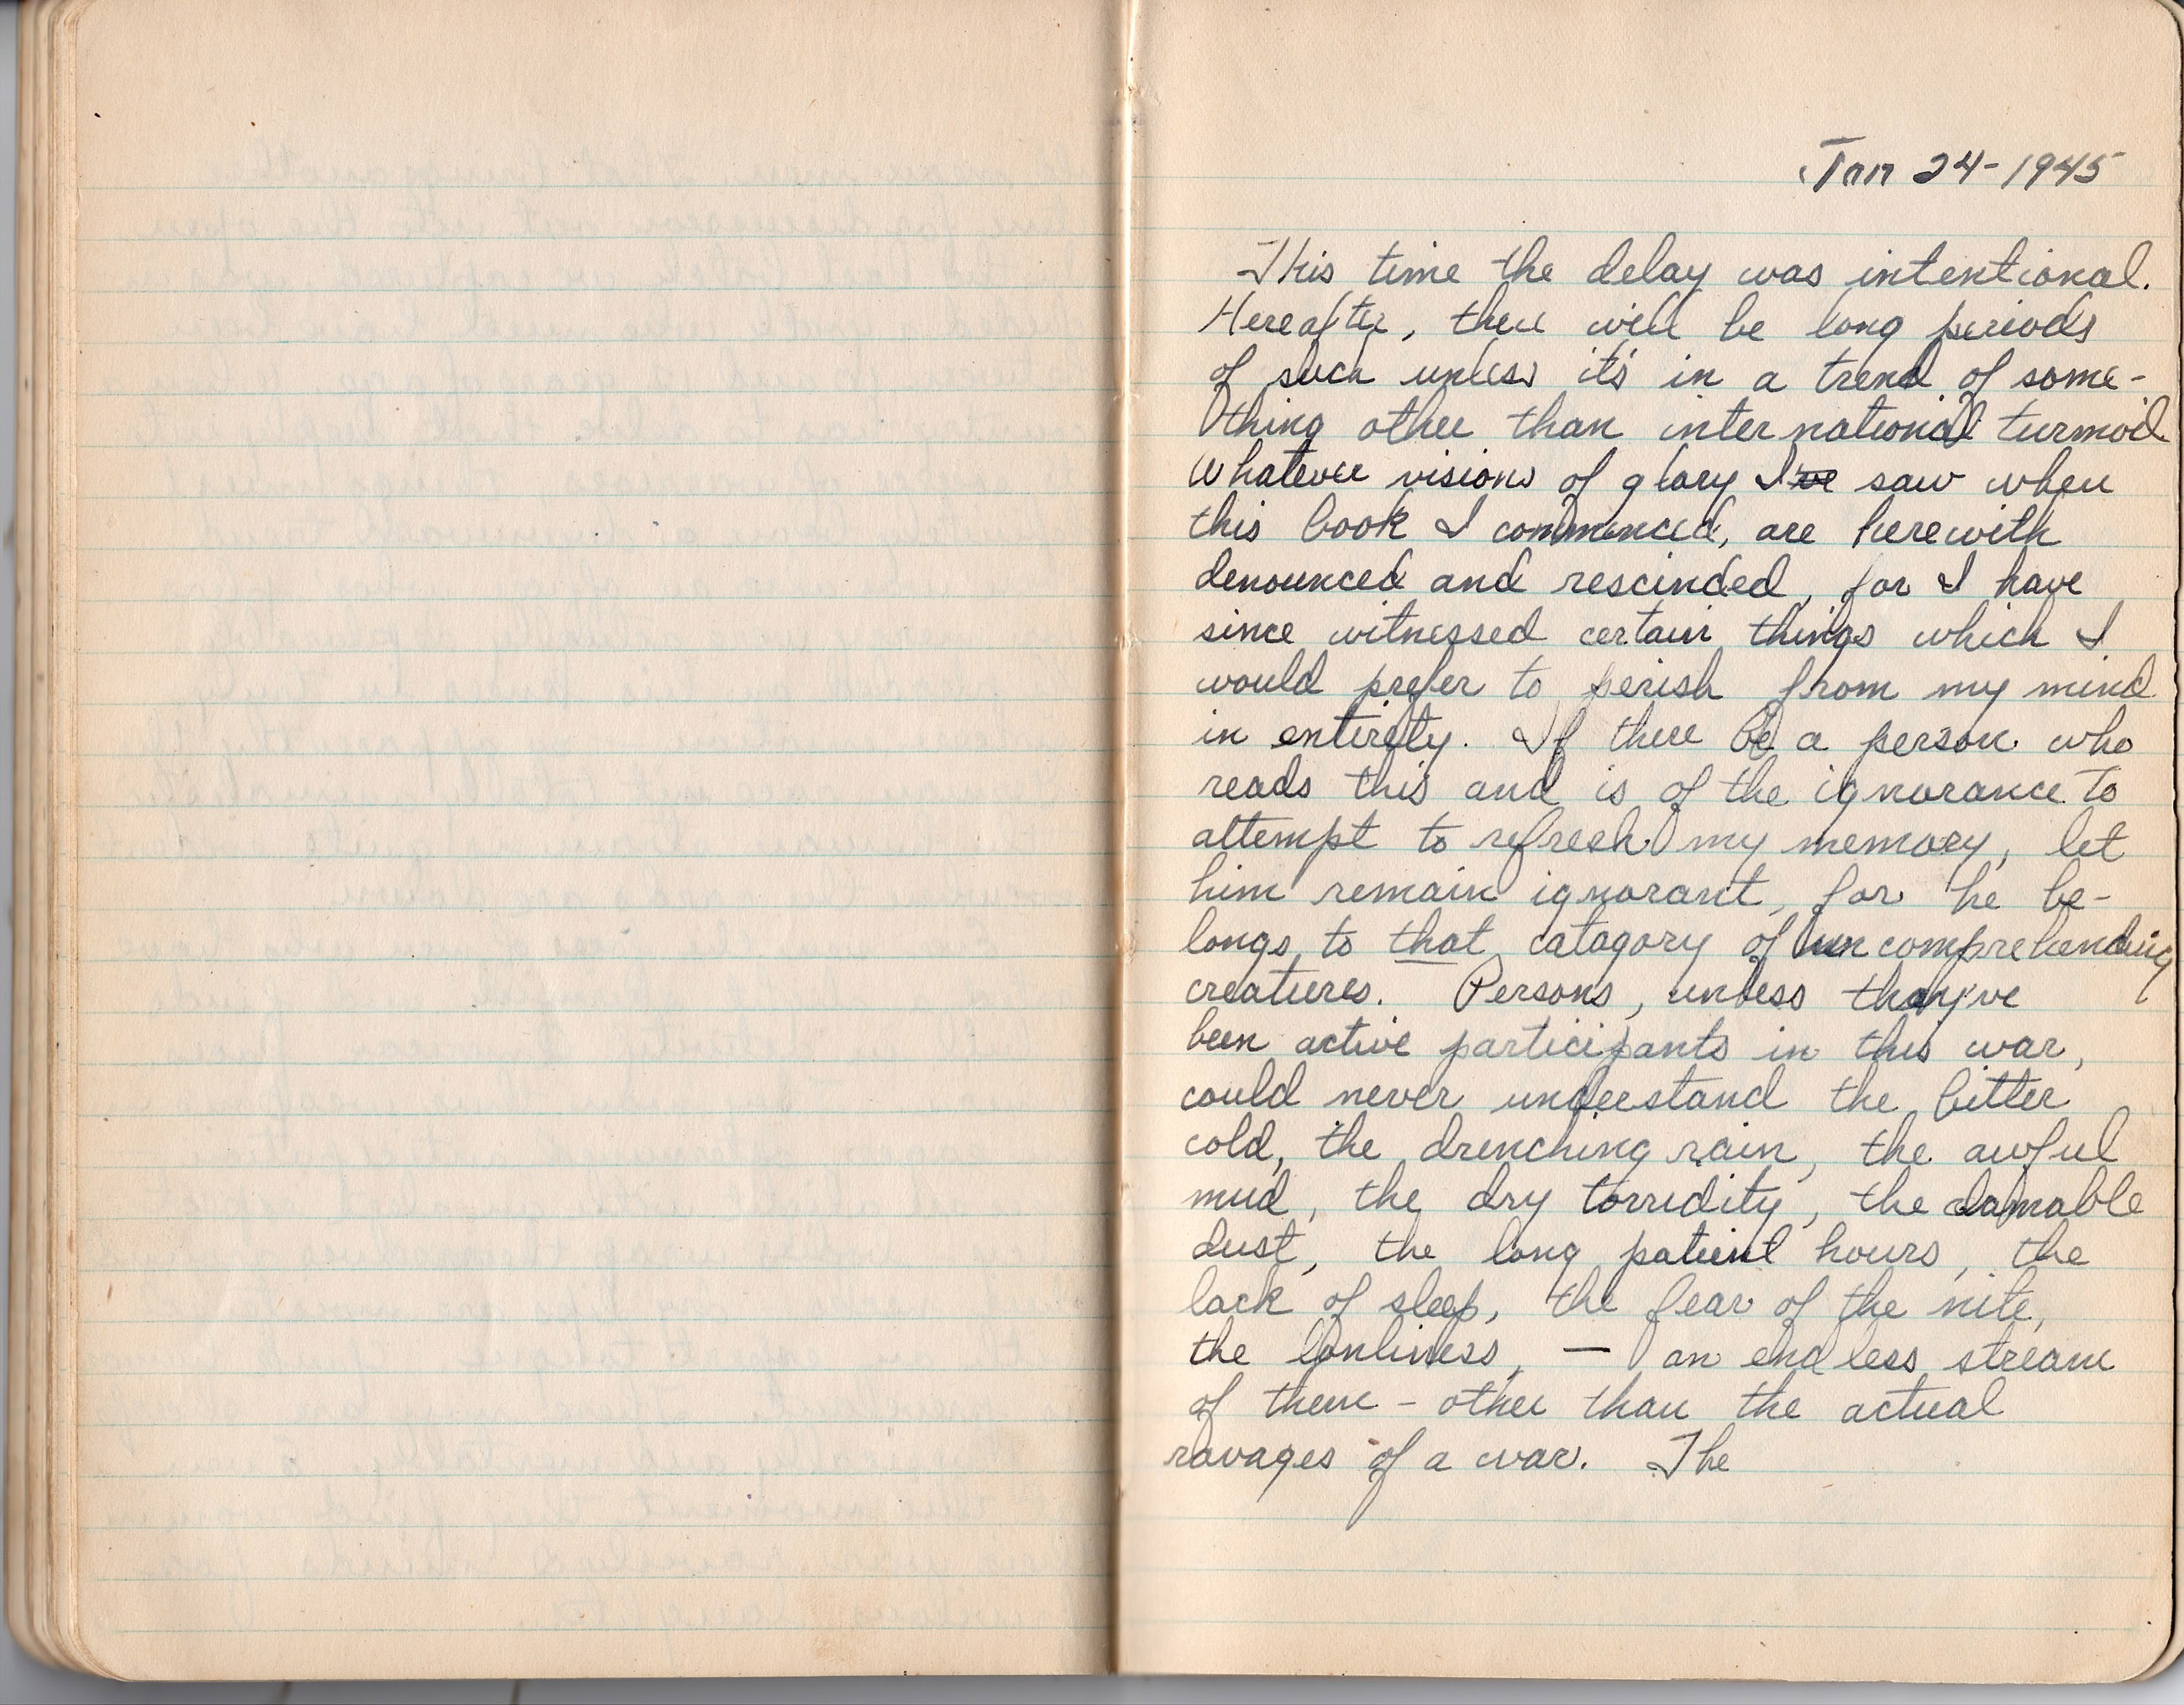 Jan 24-1945
This time the delay was intentional.
Hereafter, there will be long periods
of such unless it's in a trend of some-
thing other than international turmoil
Whatever visions of glory I've saw when
this book I commenced, are herewith
denounced and rescinded, for I have
since witnessed certain things which I
would prefer to perish from my mind
in entirety. If there be a person who
reads this and is of the ignorance to
attempt to refresh my memory, let
him remain ignorant, for he be-
longs to that catagory of uncomprehending
creatures. Persons, unless they've
been active participants in this war,
could never understand the bitter
cold, the drenching rain, the awful
mud, the dry torridity, the damable
dust, the long patient hours, the
lack of sleep, the fear of the nite,
the lonliness, — an endless stream
of them - other than the actual
ravages of a war. The